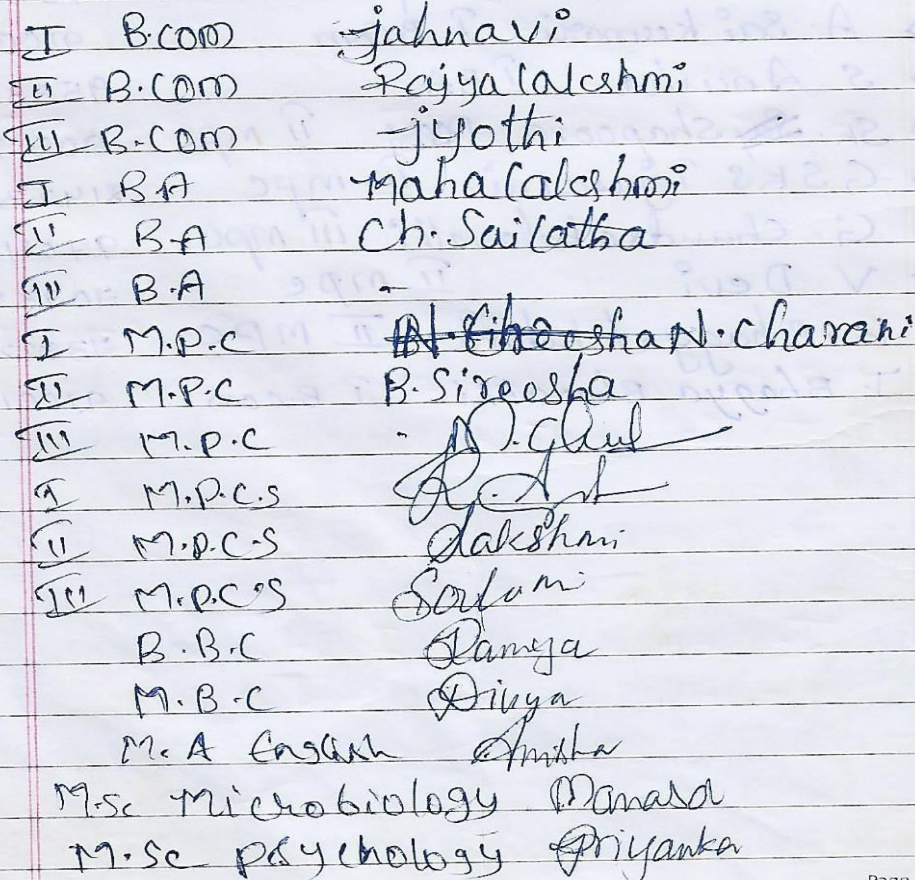 I B.COM Jahnavi
II B.COM Rajyalakshmi
III B.COM Jyothi
I B.A Mahalakshmi
II B.A Ch. Sailatha
III B.A -
I M.P.C N. Charani
II M.P.C B. Sireesha
III M.P.C -
I M.P.C.S
II M.P.C.S Lakshmi
III M.P.C.S
B.B.C Ramya
M.B.C Divya
M.A English Amisha
M.Sc Microbiology Manasa
M.Sc Psychology Priyanka